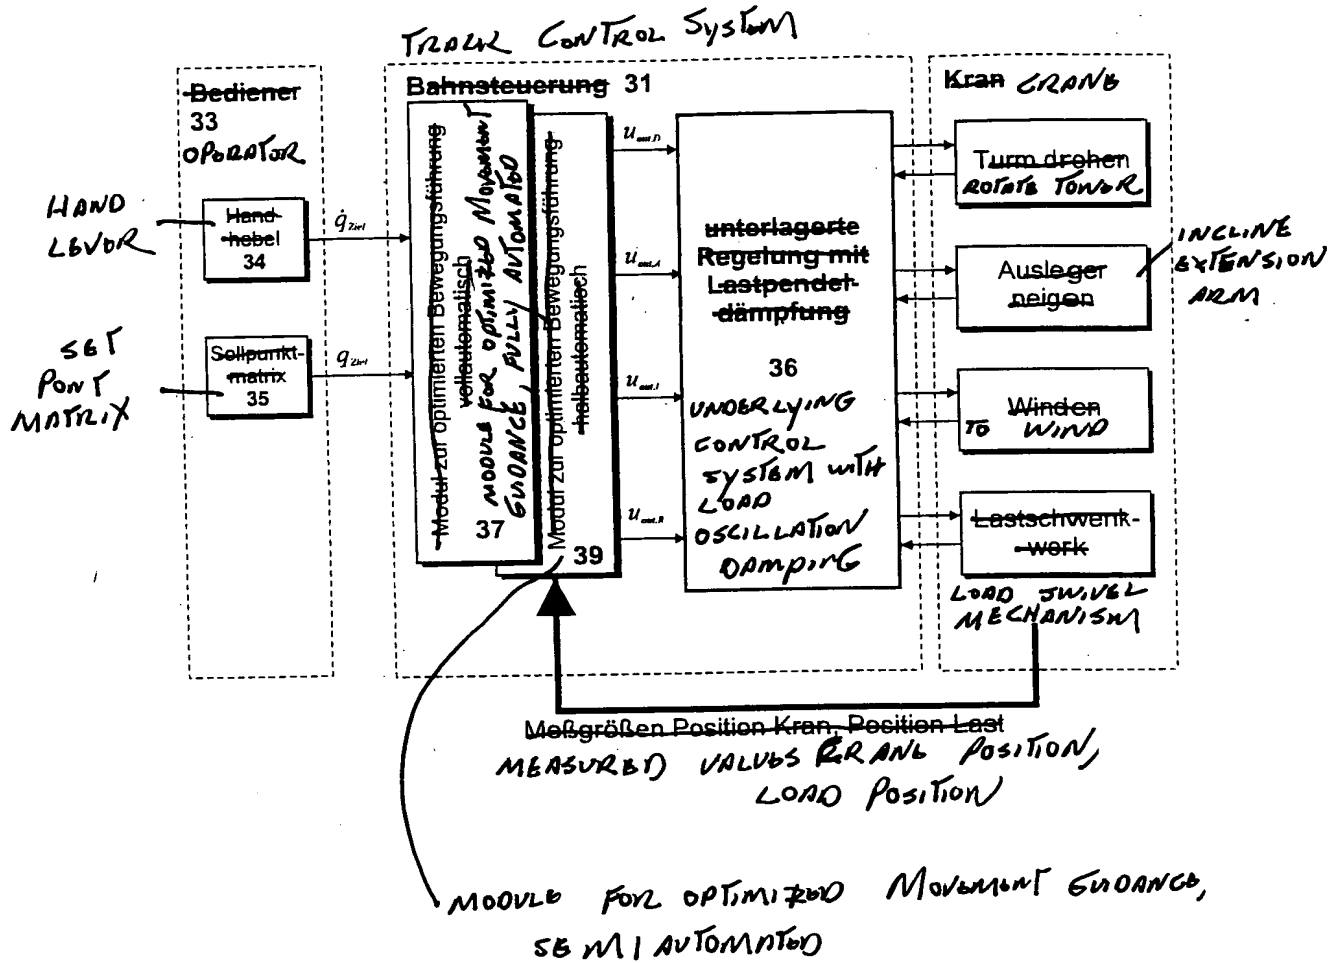 TRACK CONTROL SYSTEM
Bediener
33
OPERATOR
HAND
LEVER
Hand-
hebel
34
q̇ Ziel
SET
PONT
MATRIX
Sollpunkt-
matrix
35
q Ziel
Bahnsteuerung 31
Modul zur optimierten Bewegungsführung
vollautomatisch
MODULE FOR OPTIMIZED MOVEMENT
GUIDANCE, FULLY AUTOMATED
37
Modul zur optimierten Bewegungsführung
halbautomatisch
39
u out,D
u out,A
u out,l
u out,R
unterlagerte
Regelung mit
Lastpendel-
dämpfung
36
UNDERLYING
CONTROL
SYSTEM WITH
LOAD
OSCILLATION
DAMPING
Kran CRANE
Turm drehen
ROTATE TOWER
Ausleger
neigen
INCLINE
EXTENSION
ARM
Winden
TO WIND
Lastschwenk-
werk
LOAD SWIVEL
MECHANISM
Meßgrößen Position Kran, Position Last
MEASURED VALUES CRANE POSITION,
LOAD POSITION
MODULE FOR OPTIMIZED MOVEMENT GUIDANCE,
SEMI AUTOMATED